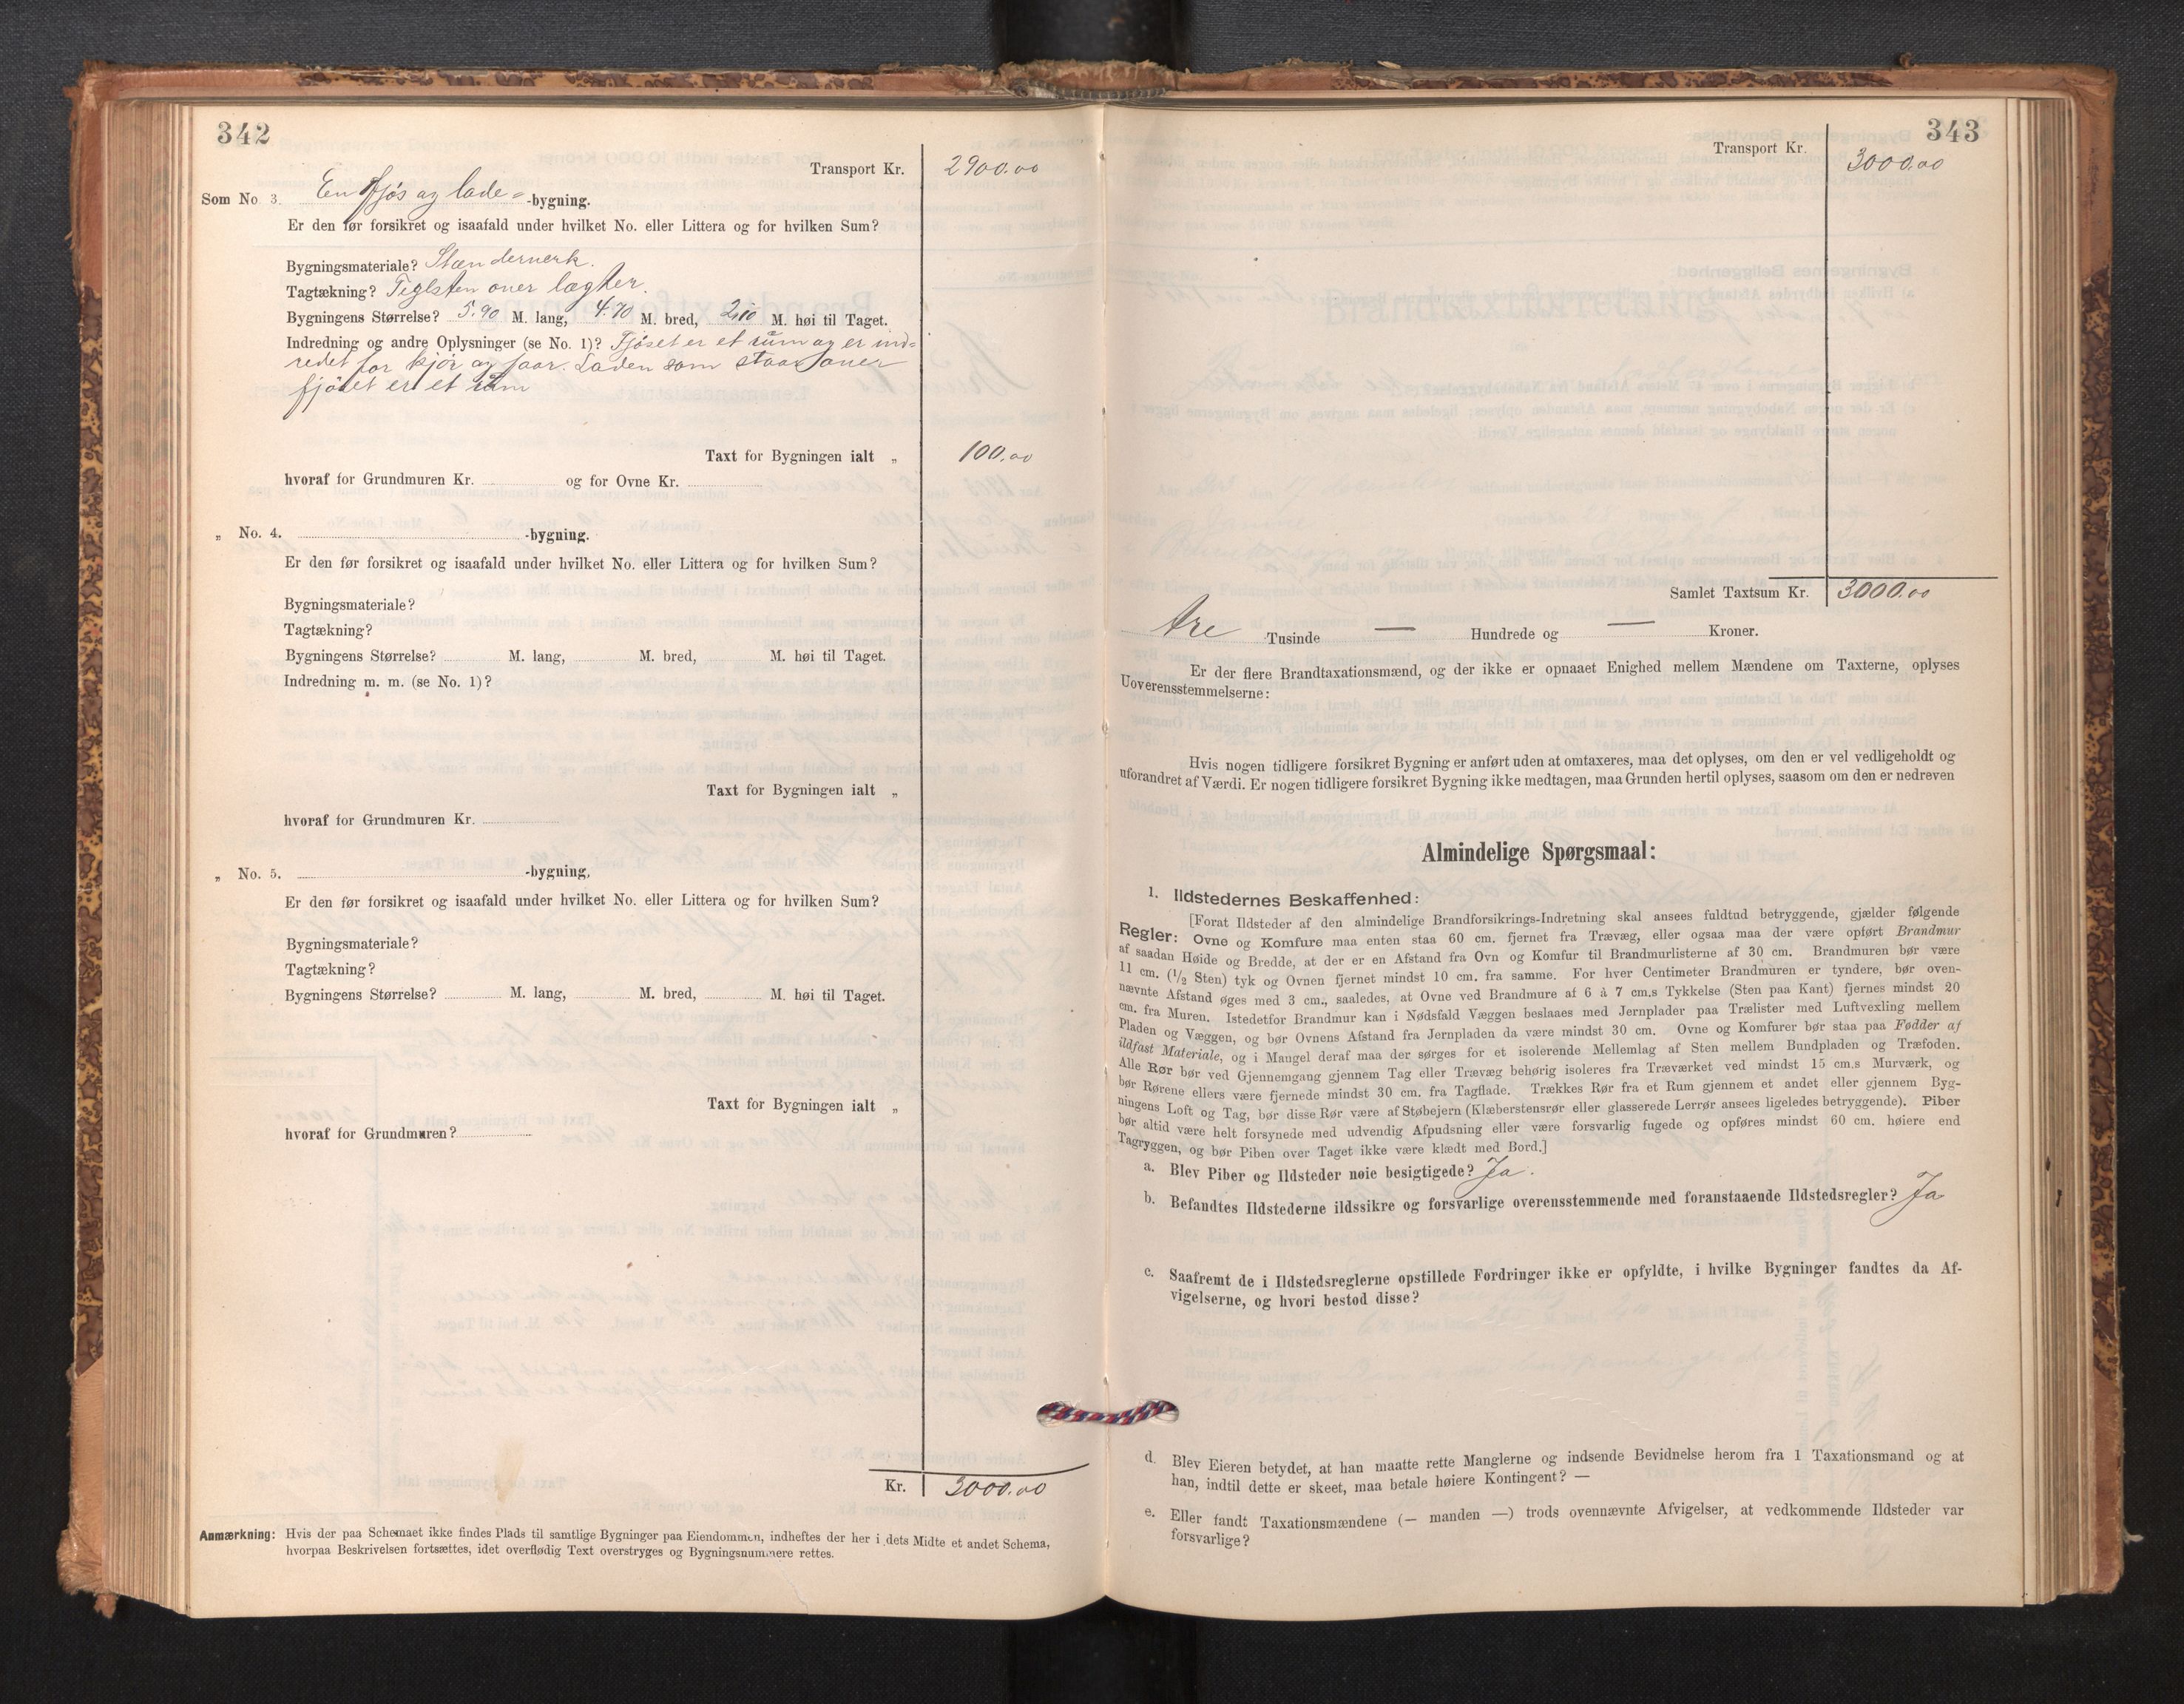 342
Transport Kr. 2900.00
Som No 3. En fjøs og lade= -bygning.
Er den før forsikret og isaafald under hvilket No. eller Littera og for hvilken Sum?
Bygningsmateriale? Stænderverk.
Tagtækning? Teglsten over lægter.
Bygningens Størrelse? 5.90 M. lang, 4.70 M. bred, 2,10 M. høi til Taget.
Indredning og andre Oplysninger (se No. 1)? Fjøset er et rum og er ind=
redet for kjør og faar. Laden som staar over
fjøset er et rum
Taxt for Bygningen ialt „ 100.00
hvoraf for Grundmuren Kr. og for Ovne Kr.
„ No. 4. -bygning.
Er den før forsikret og isaafald under hvilket No. eller Littera og for hvilken Sum?
Bygningsmateriale?
Tagtækning?
Bygningens Størrelse? M. lang, M. bred, M. høi til Taget.
Indredning m. m. (se No. 1)?
Taxt for Bygningen ialt „
hvoraf for Grundmuren Kr.
„ No. 5. -bygning,
Er den før forsikret og isaafald under hvilket No. eller Littera og for hvilken Sum?
Bygningsmateriale?
Tagtækning?
Bygningens Størrelse? M. lang, M. bred, M. høi til Taget.
Taxt for Bygningen ialt „
hvoraf for Grundmuren?
Kr. 3000.00
Anmærkning: Hvis der paa Schemaet ikke findes Plads til samtlige Bygninger paa Eiendommen, indheftes der her i dets Midte et andet Schema,
hvorpaa Beskrivelsen fortsættes, idet overflødig Text overstryges og Bygningsnummere rettes.
343
Transport Kr. 3000.00
Samlet Taxtsum Kr. 3000.00
tre Tusinde — Hundrede og — Kroner.
Er der flere Brandtaxationsmænd, og der ikke er opnaaet Enighed mellem Mændene om Taxterne, oplyses
Uoverensstemmelserne:
Hvis nogen tidligere forsikret Bygning er anført uden at omtaxeres, maa det oplyses, om den er vel vedligeholdt og
uforandret af Værdi. Er nogen tidligere forsikret Bygning ikke medtagen, maa Grunden hertil oplyses, saasom om den er nedreven
Almindelige Spørgsmaal:
1. Ildstedernes Beskaffenhed:
[Forat Ildsteder af den almindelige Brandforsikrings-Indretning skal ansees fuldtud betryggende, gjælder følgende
Regler: Ovne og Komfure maa enten staa 60 cm. fjernet fra Trævæg, eller ogsaa maa der være opført Brandmur
af saadan Høide og Bredde, at der er en Afstand fra Ovn og Komfur til Brandmurlisterne af 30 cm. Brandmuren bør være
11 cm. (1/2 Sten) tyk og Ovnen fjernet mindst 10 cm. fra samme. For hver Centimeter Brandmuren er tyndere, bør oven-
nævnte Afstand øges med 3 cm., saaledes, at Ovne ved Brandmure af 6 à 7 cm.s Tykkelse (Sten paa Kant) fjernes mindst 20
cm. fra Muren. Istedetfor Brandmur kan i Nødsfald Væggen beslaaes med Jernplader paa Trælister med Luftvexling mellem
Pladen og Væggen, og bør Ovnens Afstand fra Jernpladen da være mindst 30 cm. Ovne og Komfurer bør staa paa Fødder af
ildfast Materiale, og i Mangel deraf maa der sørges for et isolerende Mellemlag af Sten mellem Bundpladen og Træfoden.
Alle Rør bør ved Gjennemgang gjennem Tag eller Trævæg behørig isoleres fra Træverket ved mindst 15 cm.s Murværk, og
bør Rørene ellers være fjernede mindst 30 cm. fra Tagflade. Trækkes Rør fra et Rum gjennem et andet eller gjennem Byg-
ningens Loft og Tag, bør disse Rør være af Støbejern (Klæberstensrør eller glasserede Lerrør ansees ligeledes betryggende). Piber
bør altid være helt forsynede med udvendig Afpudsning eller være forsvarlig fugede og opføres mindst 60 cm. høiere end
Tagryggen, og bør Piben over Taget ikke være klædt med Bord.]
a. Blev Piber og Ildsteder nøie besigtigede? Ja.
b. Befandtes Ildstederne ildssikre og forsvarlige overensstemmende med foranstaaende Ildstedsregler? Ja
c. Saafremt de i Ildstedsreglerne opstillede Fordringer ikke er opfyldte, i hvilke Bygninger fandtes da Af-
vigelserne, og hvori bestod disse?
d. Blev Eieren betydet, at han maatte rette Manglerne og indsende Bevidnelse herom fra 1 Taxationsmand og at
han, indtil dette er skeet, maa betale høiere Kontingent? —
e. Eller fandt Taxationsmændene (— manden —) trods ovennævnte Afvigelser, at vedkommende Ildsteder var
forsvarlige?